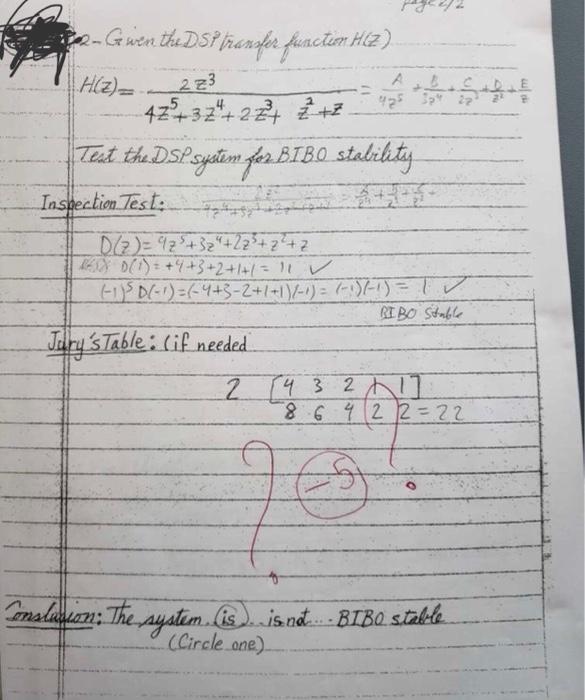 page 2/2
2- Given the DSP transfer function H(Z)
H(Z) = 2Z³ / (4Z⁵ + 3Z⁴ + 2Z³ + Z² + Z) = A/4z⁵ + B/3z⁴ + C/2z³ + D/z² + E/z
Test the DSP system for BIBO stability
Inspection Test:
D(z) = 4z⁵+3z⁴+2z³+z²+z
D(1) = +4+3+2+1+1 = 11 ✓
(-1)⁵ D(-1) = (-4+3-2+1+1)(-1) = (-1)(-1) = 1 ✓
BIBO Stable
Jury's Table: (if needed
2 [4 3 2 1 1]
8 6 4 2 2 = 22
? -5 ?
Conslusion: The system. is .. is not ... BIBO stable
(Circle one)